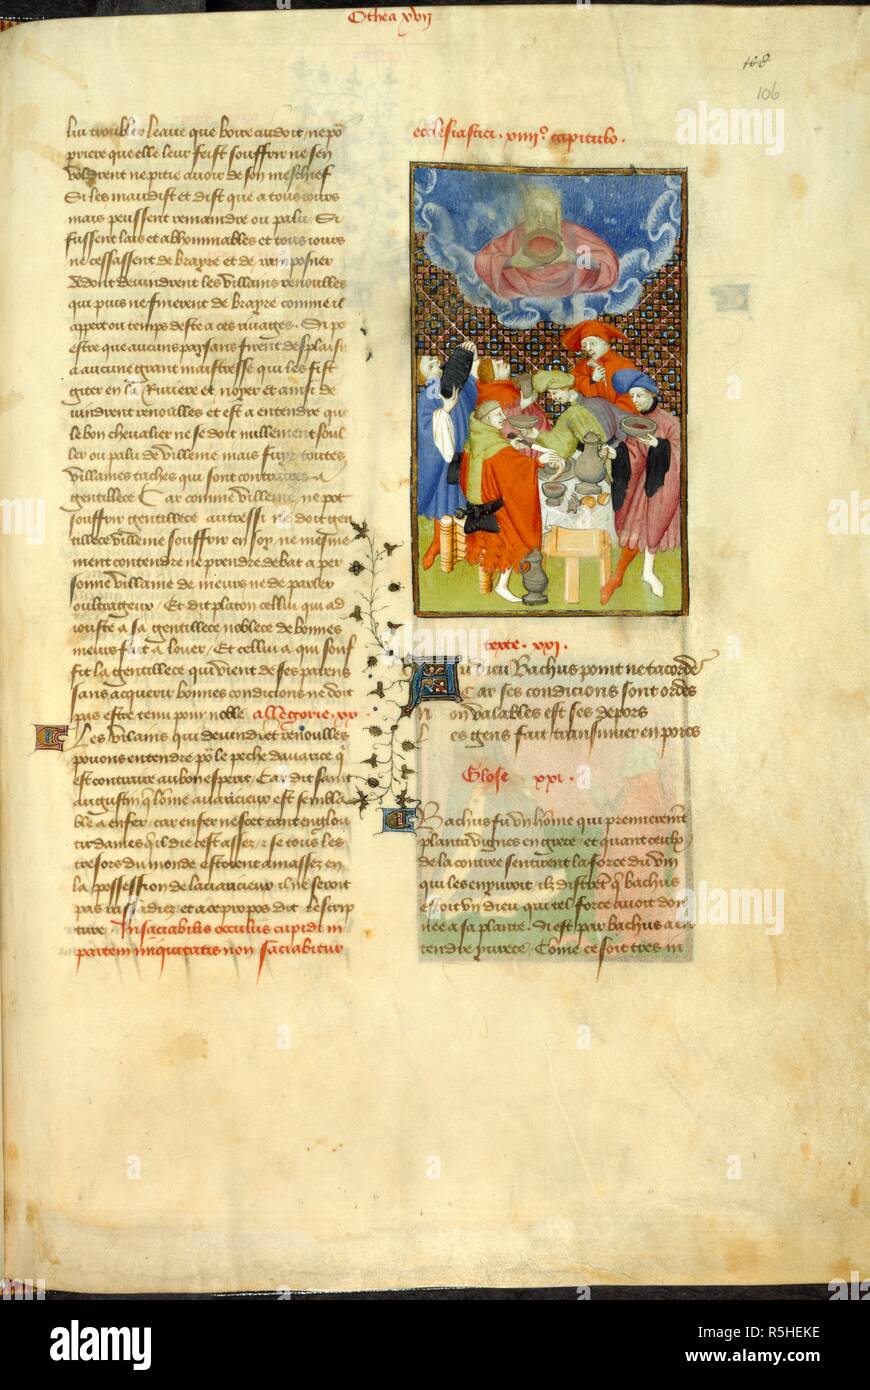 Othea xvij
108
106
lui troubler leaue que boire audoit ne po
priere que elle leur feist souffrir ne sen
voldrent ne pitie auoir de son meschief
Si les maudist et dist que a tous iours
mais peussent remaindre ou palu Si
fussent lais et abhominables et tous iours
ne cessassent de brayre et de ramposner
dont deuindrent les villains renoulles
qui puis ne finerent de brayre comme il
appert ou temps deste a ces riuages. Si po
estre que aucuns paysans firent desplaisir
a aucune grant maistresse qui les fist
giter en la Riuiere et noyer et ainsi de
uindrent renoulles et est a entendre que
le bon cheualier ne se doit nullement soul
ler ou palu de villenie mais fuyr toutes
villaines taches qui sont contraires a
gentillece Car comme villenie ne pot
souffrir gentillece autressi ne doit gen
tillece villenie souffrir en soy ne mesme
ment contendre ne prendre debat a per
sonne villaine de meurs ne de parler
oultrageux Et dit platon cellui qui ad
iouste a sa gentillece noblece de bonnes
meurs fait a louer Et cellui a qui souf
fit la gentillece qui vient de ses parens
sans acquerir bonnes condicions ne doit
pas estre tenu pour noble allegorie xx
Les vilains qui deuindrent renoulles
pouons entendre po le peche dauarice q
est contraire au bon esperit Car dit saint
augustin q lome auaricieux est sembla
ble a enfer car enfer ne scet tant englou
tir dames qil die cest assez se tous les
tresors du monde estoient amassez en
la possession de lauaricieux il ne seroit
pas et a ce propos dit lescrip
ture Insaciabilis occulus cupidi in
partem iniquitatis non saciabitur
ecclesiastici xiiii° capitulo
texte xxi
Au dieu Bachus point ne tacorde
Car ses condicions sont ordes
Non valables est ses depors
Les gens fait transmuer en pors
Glose xxi
Bachus fu un home qui premierement
planta vignes en grece et quant ceulx
de la contree sentirent la force du vin
qui les enyuroit ilz distrent q bachus
estoit un dieu qui tel force auoit don
nee a sa plante. Si est par bachus a en
tendre yurece Come ce soit tres in
alamy
a
alamy
Image ID: R5HEKE
www.alamy.com